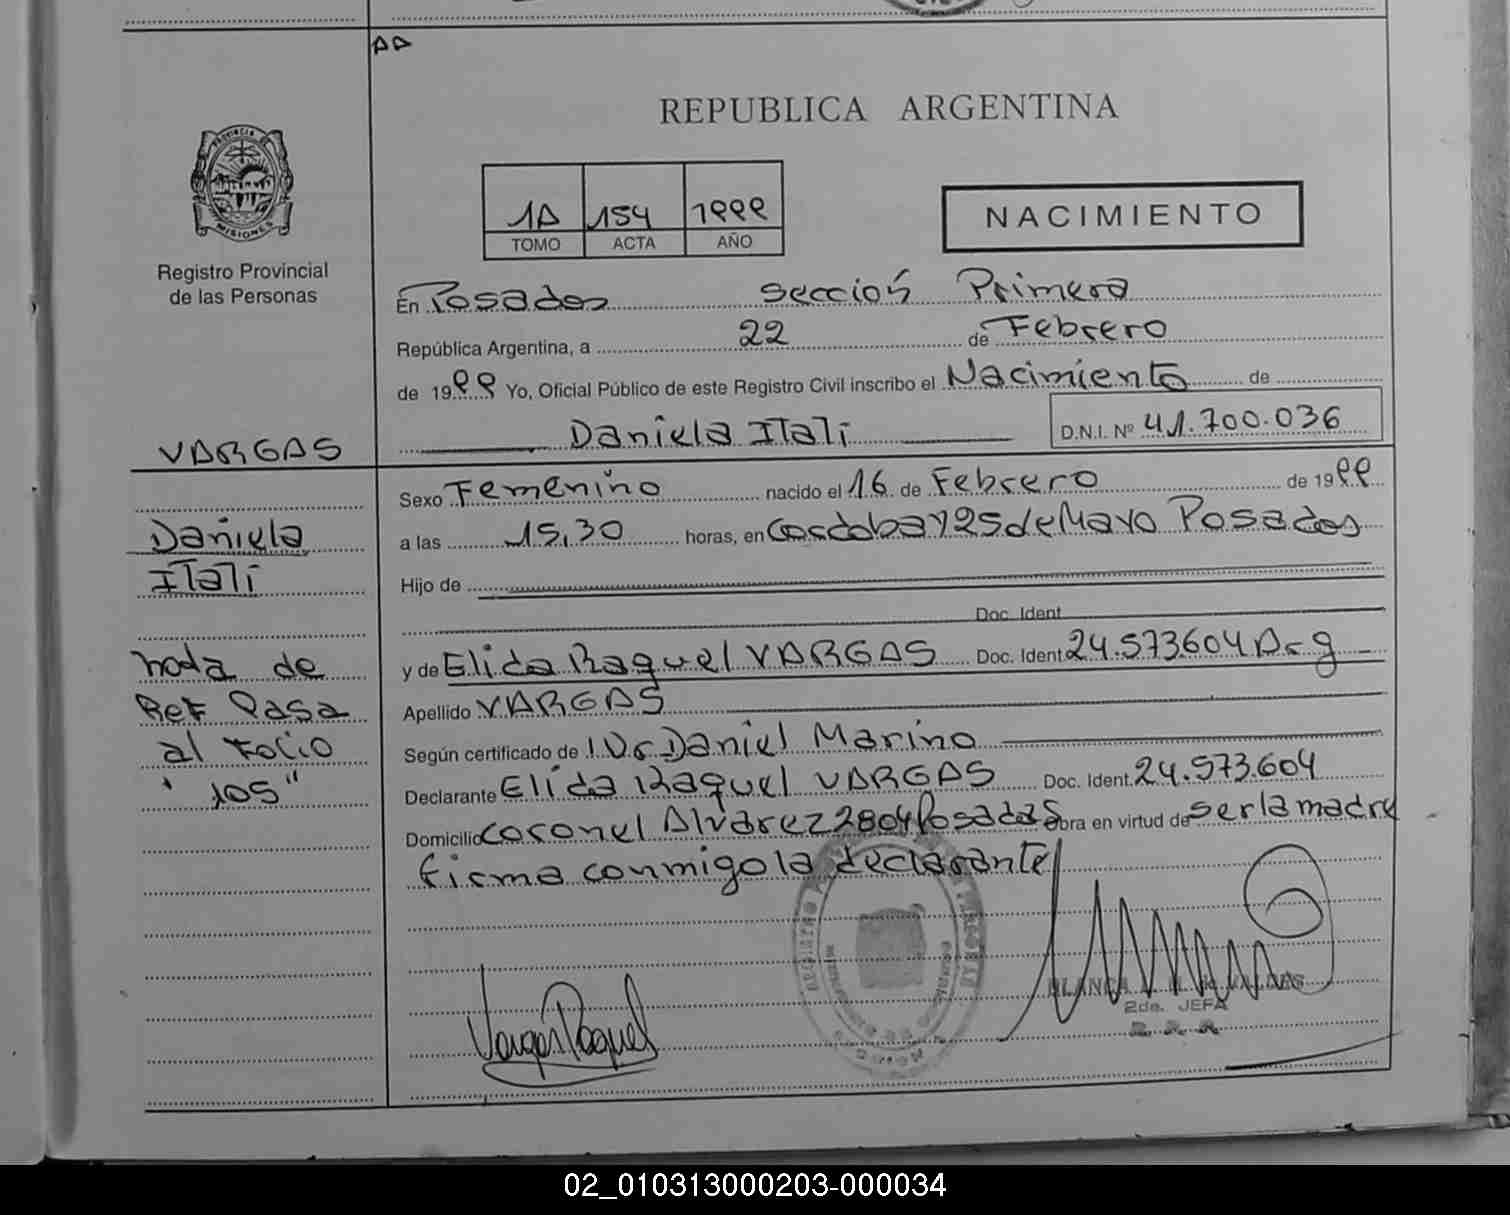 REPUBLICA ARGENTINA
PROVINCIA DE
MISIONES
Registro Provincial
de las Personas
1A 154 1999
TOMO ACTA AÑO
NACIMIENTO
En Posadas sección Primera
República Argentina, a 22 de Febrero
de 1999 Yo, Oficial Público de este Registro Civil inscribo el Nacimiento de
Daniela Itali D.N.I. Nº 41.700.036
VARGAS
Daniela
Itali
nota de
Ref Pasa
al Folio
"105"
Sexo Femenino nacido el 16 de Febrero de 1999
a las 15,30 horas, en Cordoba y 25 de Mayo Posadas
Hijo de
Doc. Ident
y de Elida Raquel VARGAS Doc. Ident. 24.573.604 Arg
Apellido VARGAS
Según certificado de Dr Daniel Marino
Declarante Elida Raquel VARGAS Doc. Ident. 24.573.604
Domicilio Coronel Alvarez 2804 Posadas obra en virtud de ser la madre
firma conmigo la declarante
Vargas Raquel
2da. JEFA
02_010313000203-000034